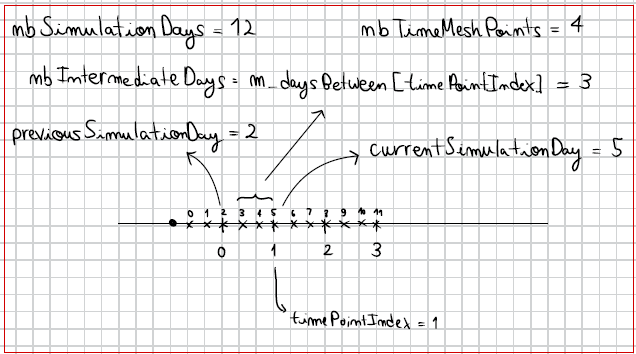 nbSimulationDays = 12
nbTimeMeshPoints = 4
nbIntermediateDays = m_daysBetween[timePointIndex] = 3
previousSimulationDay = 2
currentSimulationDay = 5
0 1 2 3 4 5 6 7 8 9 10 11
0 1 2 3
timePointIndex = 1